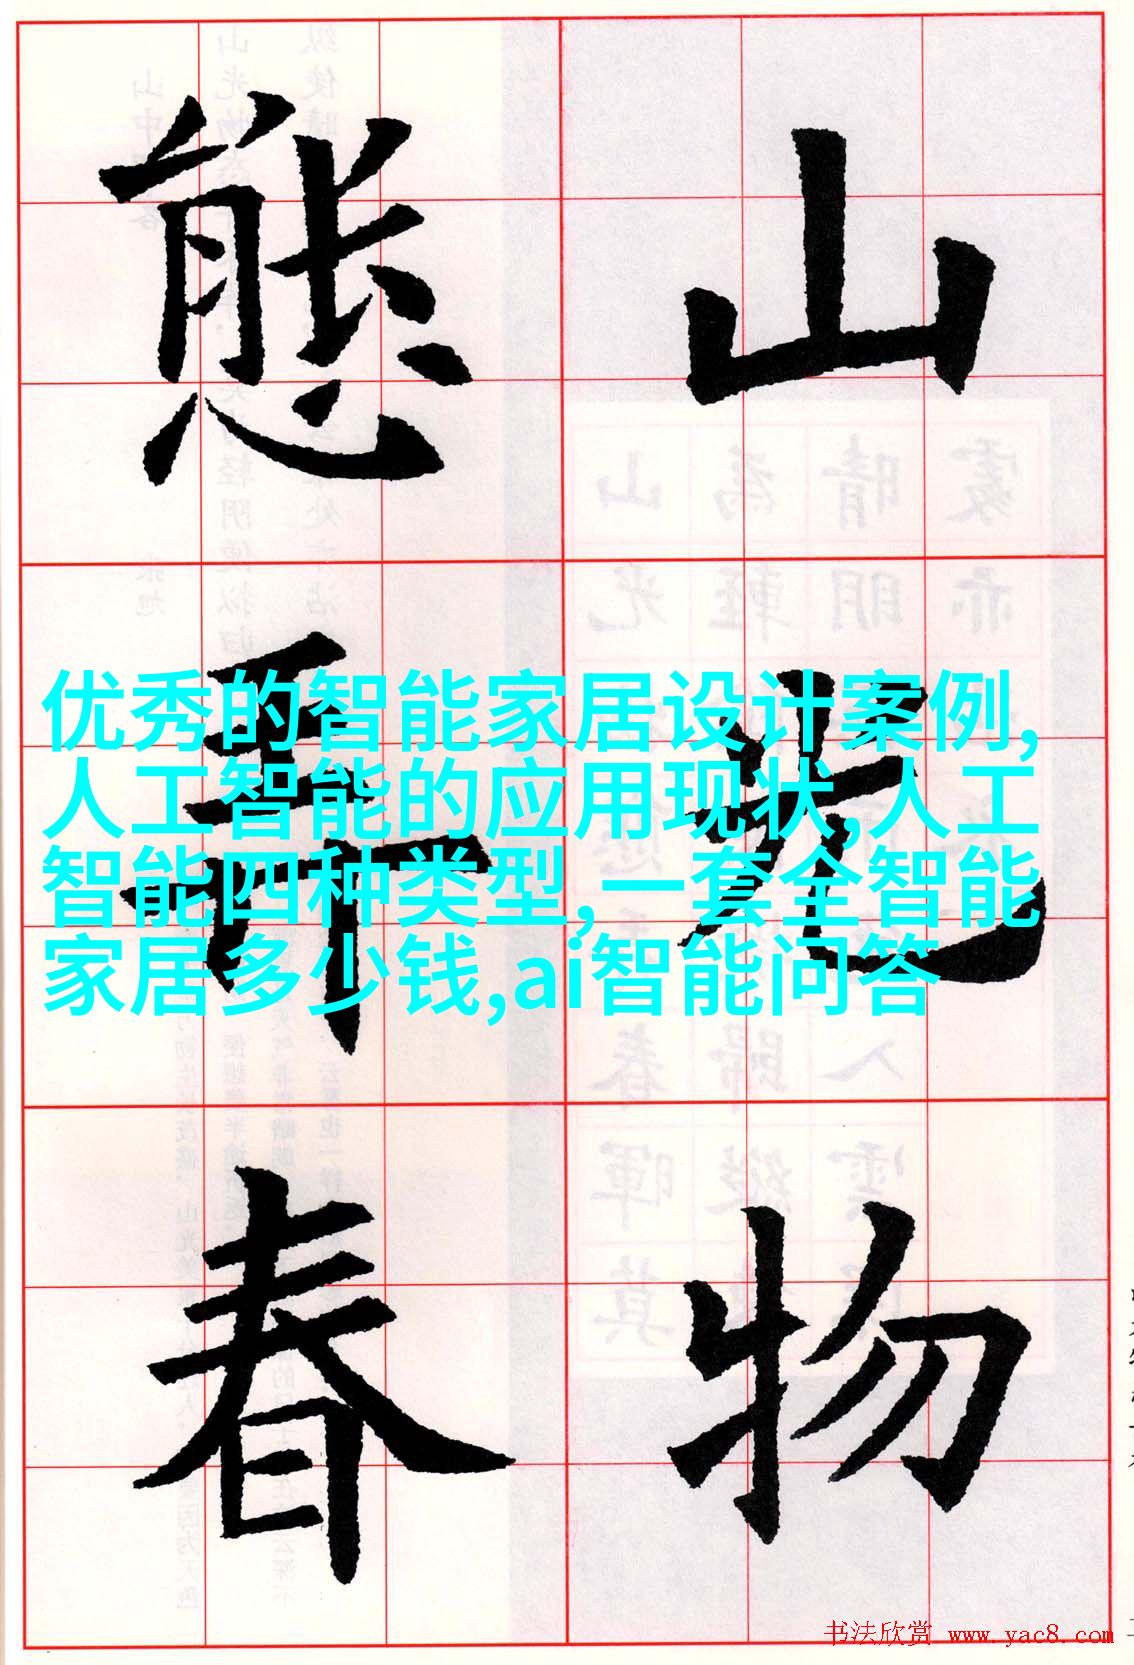 山光物
態弄春
优秀的智能家居设计案例,
人工智能的应用现状,人工
智能四种类型,一套全智能
家居多少钱,ai智能问答
书法欣赏 www.yac8.com